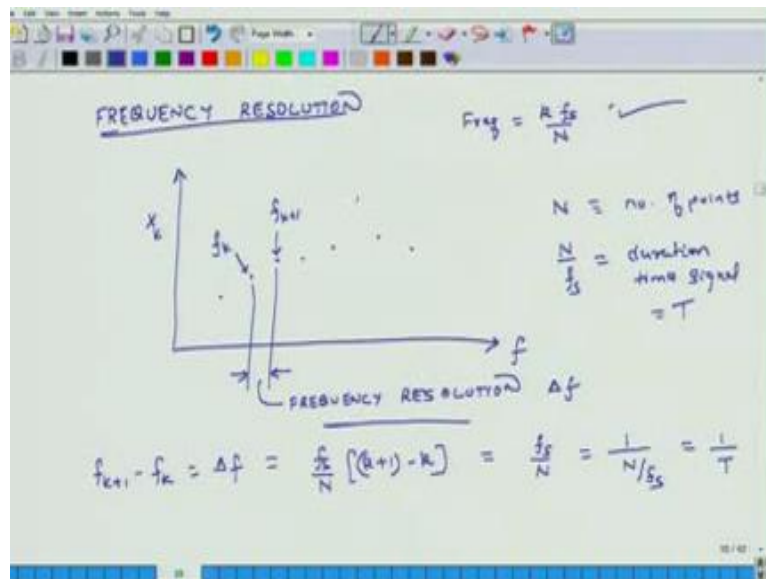 Page Width
FREQUENCY RESOLUTION
Freq = k fs / N
N = no. of points
N / fs = duration
time signal
= T
Xk
fk
fk+1
f
FREQUENCY RESOLUTION Δf
fk+1 - fk = Δf = fs/N [(k+1) - k] = fs/N = 1/(N/fs) = 1/T